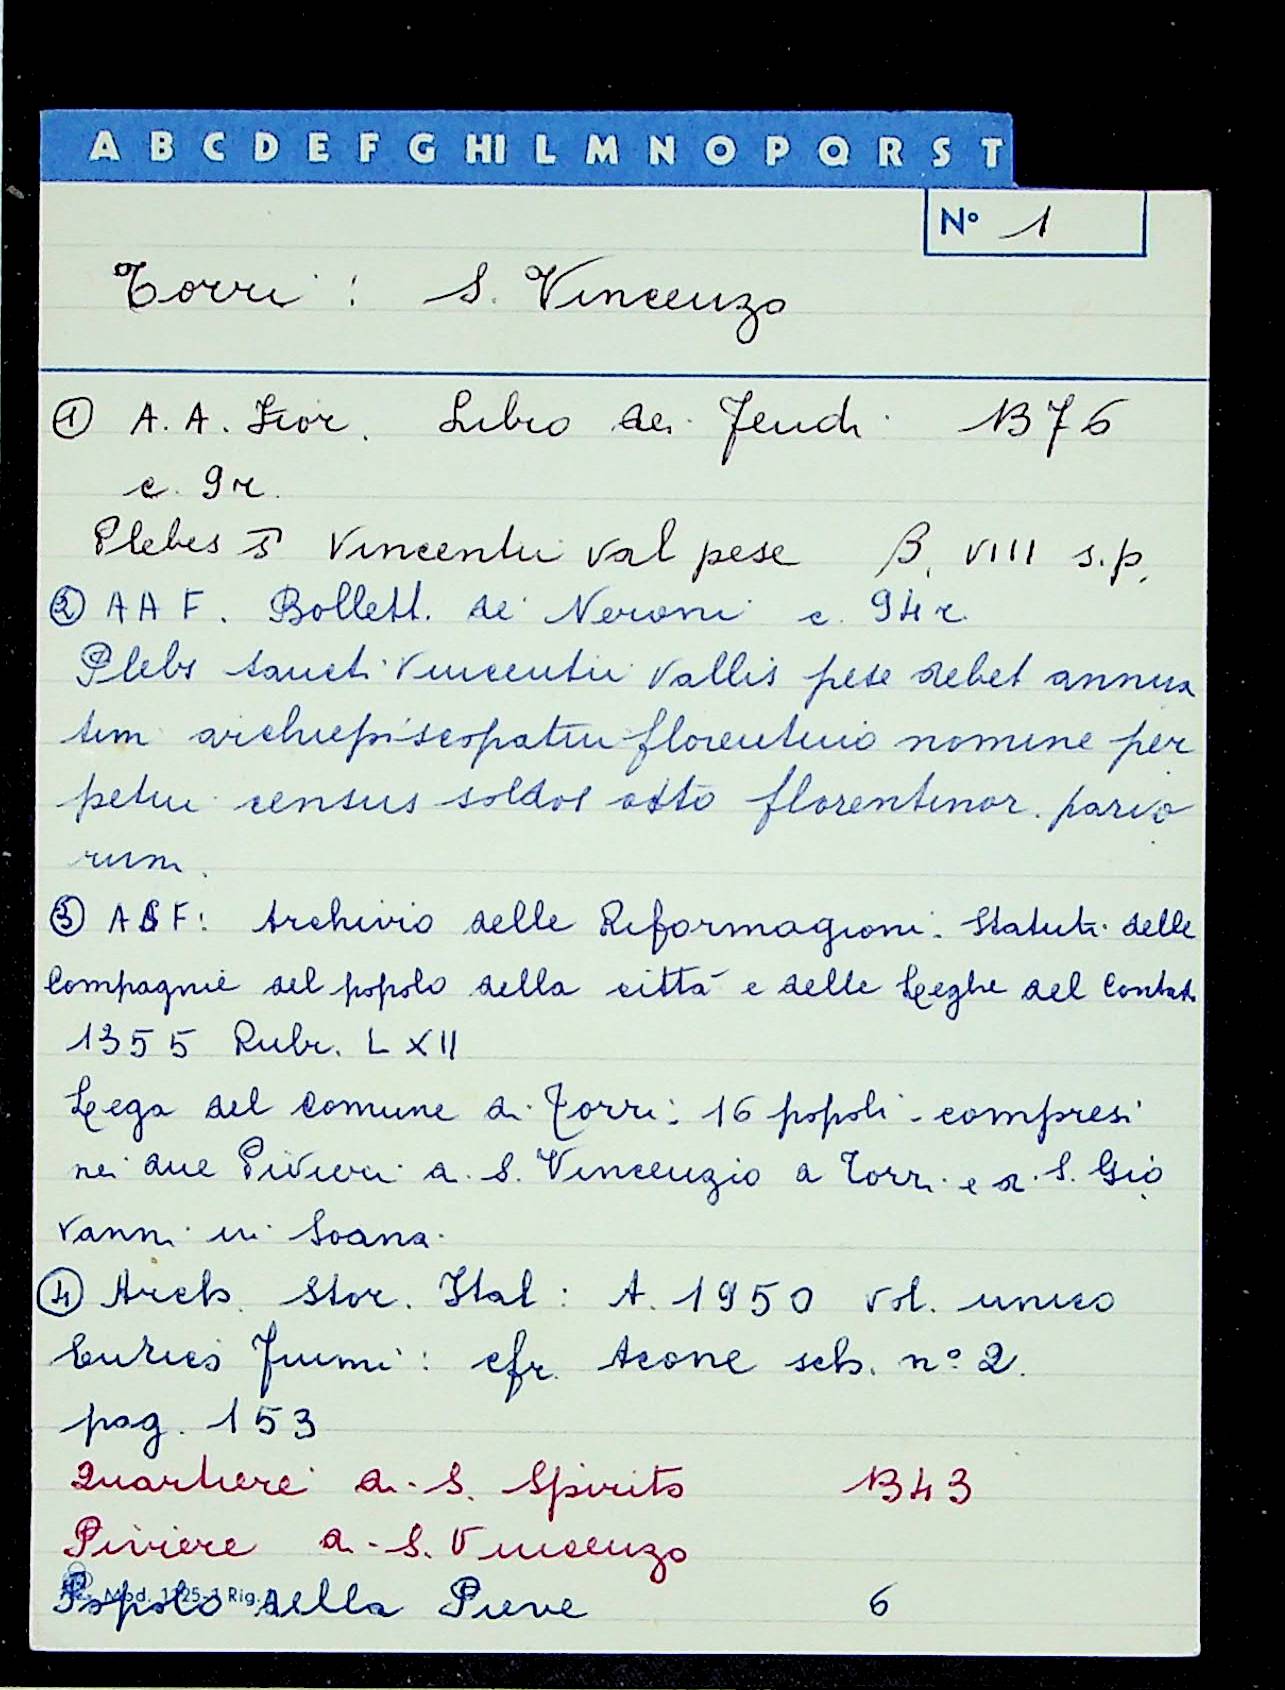 A B C D E F G HI L M N O P Q R S T
N° 1
Torri : S. Vincenzo
① A. A. Fior. Libro dei Feudi 1376
c. 9r.
Plebes S Vincentii val pese β. VIII s.p.
② A A F. Bollett. dei Neroni c. 94r.
Plebs sancti Vincentii Vallis pese debet annua
tim archiepiscopatui florentino nomine per
petui census soldos otto florentinor. parvo
rum.
③ ASF: Archivio delle Riformagioni. Statuti delle
Compagnie del popolo della città e delle Leghe del Contado
1355 Rubr. LXII
Lega del Comune di Torri: 16 popoli - compresi
nei due Pivieri di S. Vincenzio a Torri e di S. Gio
vanni in Soana.
④ Arch. Stor. Ital : A. 1950 vol. unico
Enrico Fiumi : cfr. Acone sch. n° 2.
pag. 153
Quartiere di S. Spirito 1343
Piviere di S. Vincenzo
Mod. 1125-1 Rig.
Popolo della Pieve 6